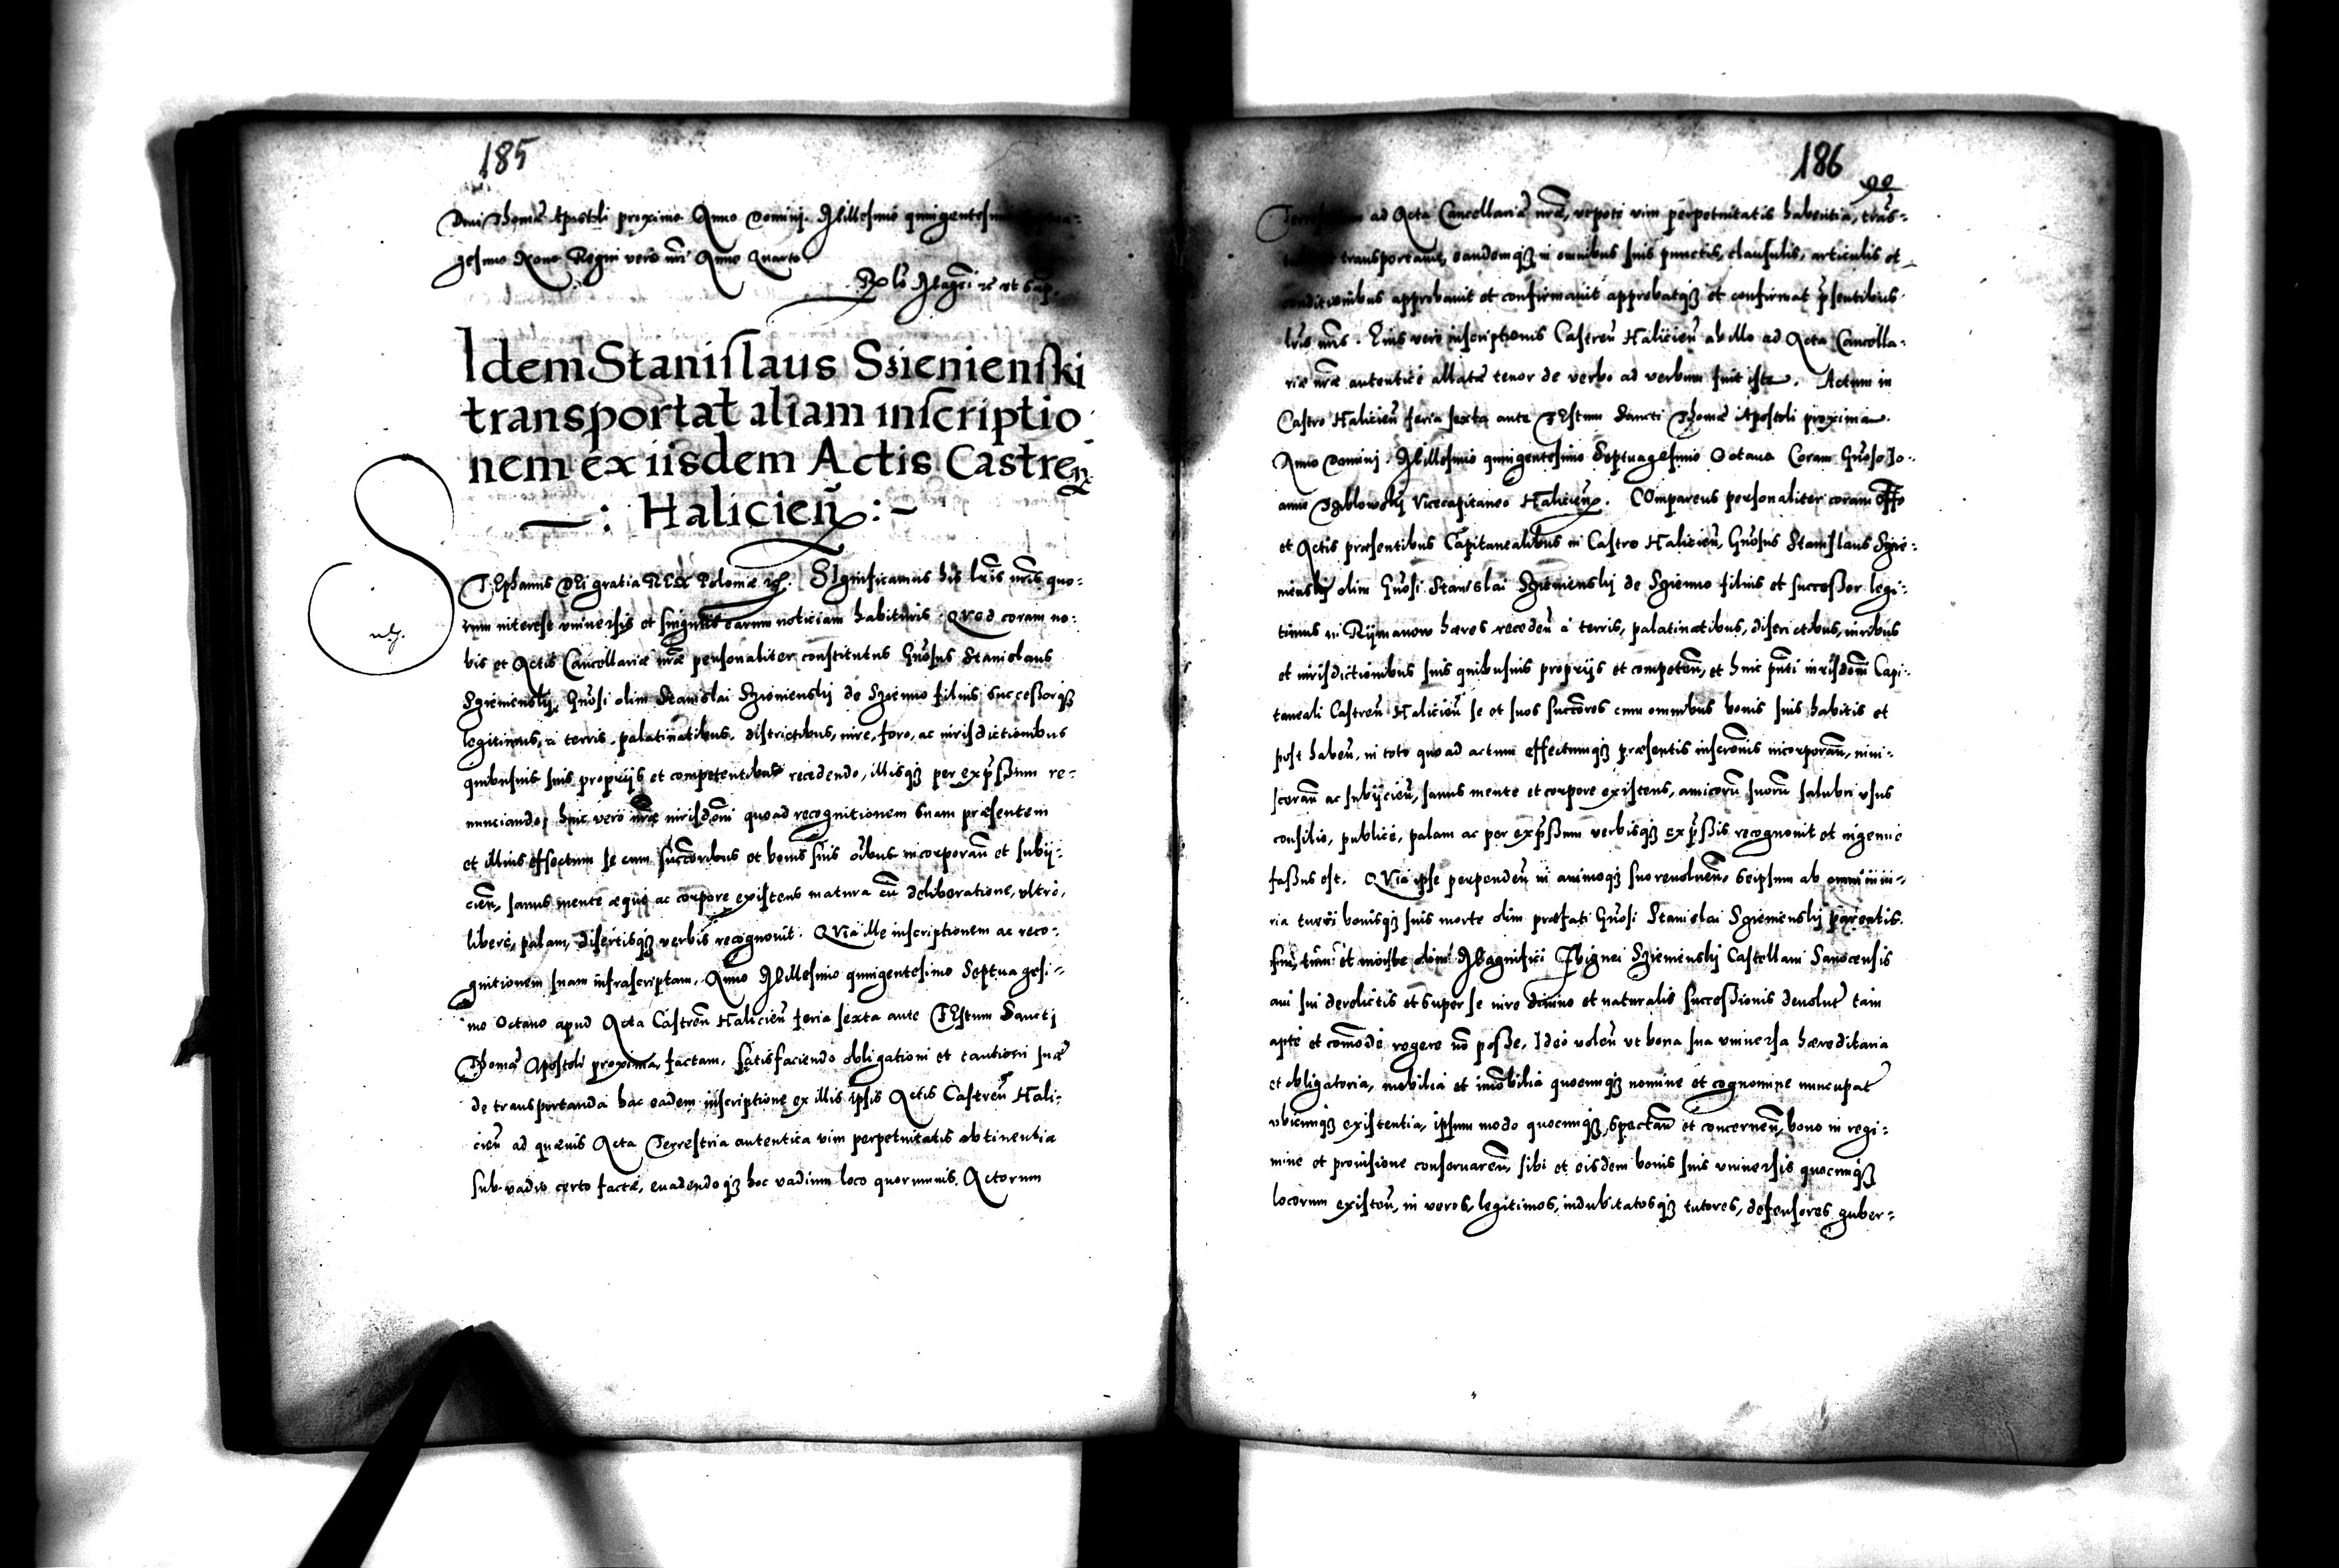 185
Diui Thomæ Apostoli proximo Anno Domini Millesimo quingentesimo
gesimo Nono Regni verò nri Anno Quarto
Rlõ Magci &c ut sup.
Idem Stanislaus Szienienski
transportat aliam inscriptio
nem ex iisdem Actis Castreñ
—: Halicieñ :–
STEphanus DEi gratia REx Poloniæ &c. SIgnificamus his lris nris quo=
rum interest vniuersis et singulis earum noticiam habituris. QVod coram no=
bis et Actis Cancellariæ nræ personaliter constitutus Gnosus Stanislaus
Szienienskij, Gnosi olim Stanislai Szienienskij de Szienno filius successorq3
legitimus, à terris, palatinatibus, districtibus, iure, foro, ac iurisdictionibus
quibusuis suis proprijs et competentibus recedendo, illisq3 per expssum re=
nunciando, huic verò nræ iurisdoni quo ad recognitionem suam præsentem
et illius effectum se cum succoribus et bonis suis oibus incorporañ et subij=
cieñ, sanus mente æque ac corpore existens matura cũ deliberatione, vltrò,
liberè, palam, disertisq3 verbis recognouit. QVia ille inscriptionem ac reco=
gnitionem suam infrascriptam, Anno Millesimo quingentesimo Septuagesi=
mo Octauo apud Acta Castreñ Halicieñ feria sexta ante FEstum Sancti
Thomæ Apostoli proxima, factam, satisfaciendo obligationi et cautioni suæ
de transportanda hac eadem inscriptione ex illis ipsis Actis Castreñ Hali=
cieñ ad quæuis Acta Terrestria autentica vim perpetuitatis obtinentia
sub vadio certo factæ, euadendoq3 hoc vadium loco quorumuis Actorum
186
ad Acta Cancellariæ nræ, vtpote vim perpetuitatis habentia, trans=
transportauit, eandemq3 in omnibus suis punctis, clausulis, articulis et
conditionibus approbauit et confirmauit approbatq3 et confirmat psentibus
lris nris. Eius verò inscriptionis Castreñ Halicieñ ab illo ad Acta Cancella=
riæ nræ autenticè allatæ tenor de verbo ad verbum fuit iste. Actum in
Castro Halicieñ feria sexta ante FEstum Sancti Thomæ Apostoli proxima
Anno Domini Millesimo quingentesimo Septuagesimo Octauo Coram Gnoso Jo=
anne Vicecapitaneo Halicieñ. COmparens personaliter coram offo
et Actis præsentibus Capitanealibus in Castro Halicieñ, Gnosus Stanislaus Szie=
nienskij olim Gnosi Stanislai Szienienskij de Szienno filius et successor legi=
timus in Rijmanow hæres recedeñ à terris, palatinatibus, districtibus, iuribus
et iurisdictionibus suis quibusuis proprijs et competeñ, et huic pnti iurisdoni Capi=
taneali Castreñ Halicieñ se et suos succores cum omnibus bonis suis habitis et
post habeñ, in toto quo ad actum effectumq3 præsentis inscronis incorporañ, inui=
scerañ ac subijcieñ, sanus mente et corpore existens, amicorũ suorũ salubri vsus
consilio, publicè, palam ac per expssum verbisq3 expssis recognouit et ingenuè
fassus est. QVia ipse perpendeñ in animoq3 suo reuolueñ, seipsum ab omni iniu=
ria tueri bonisq3 suis morte olim præfati Gnosi Stanislai Szienienskij parentis
sui, tum et morte olim Magnifici Zbignei Szienienskij Castellani Sanocensis
aui sui derelictis et super se iure diuino et naturalis successionis deuolut tam
aptè et comodè regere nõ posse. Ideo voleñ vt bona sua vniuersa hæreditaria
et obligatoria, mobilia et imobilia quocunq3 nomine et cognomine nuncupat
vbicunq3 existentia, ipsum modo quocunq3 spectañ et concerneñ, bono in regi=
mine et prouisione conseruareñ, sibi et eisdem bonis suis vniuersis quocunq3
locorum existeñ, in veros, legitimos, indubitatosq3 tutores, defensores guber=